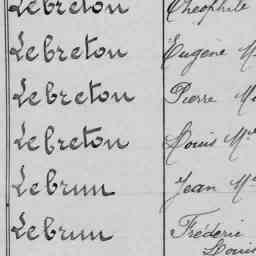 Lebreton Théophile
Lebreton Eugène M
Lebreton Pierre M
Lebreton Louis M
Lebrun Jean M
Lebrun Fréderic
Louis